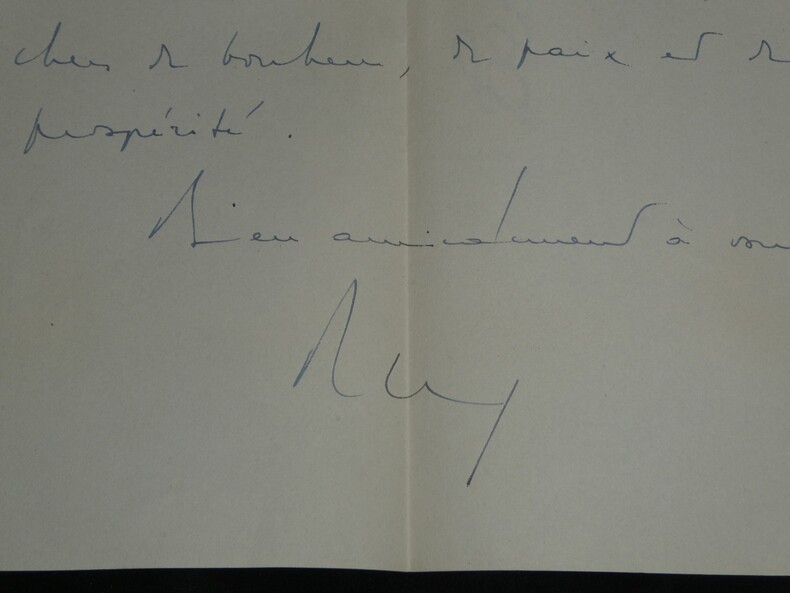 chers de bonheur, de paix et de
prospérité.
Bien amicalement à vous